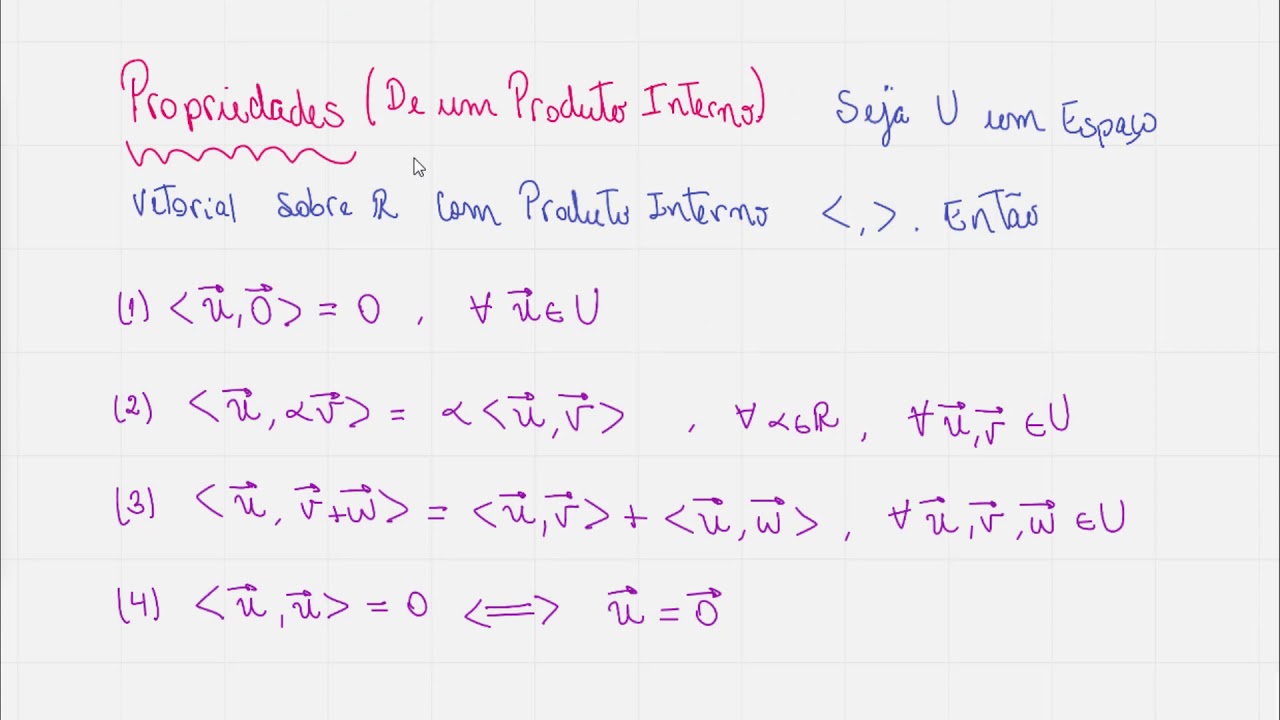 Propriedades (De um Produto Interno) Seja U um Espaço
Vetorial sobre ℝ com Produto Interno <,>. Então
(1) <u⃗, 0⃗> = 0 , ∀ u⃗ ∈ U
(2) <u⃗, αv⃗> = α<u⃗, v⃗> , ∀ α ∈ ℝ, ∀ u⃗, v⃗ ∈ U
(3) <u⃗, v⃗+w⃗> = <u⃗, v⃗> + <u⃗, w⃗>, ∀ u⃗, v⃗, w⃗ ∈ U
(4) <u⃗, u⃗> = 0 <=> u⃗ = 0⃗